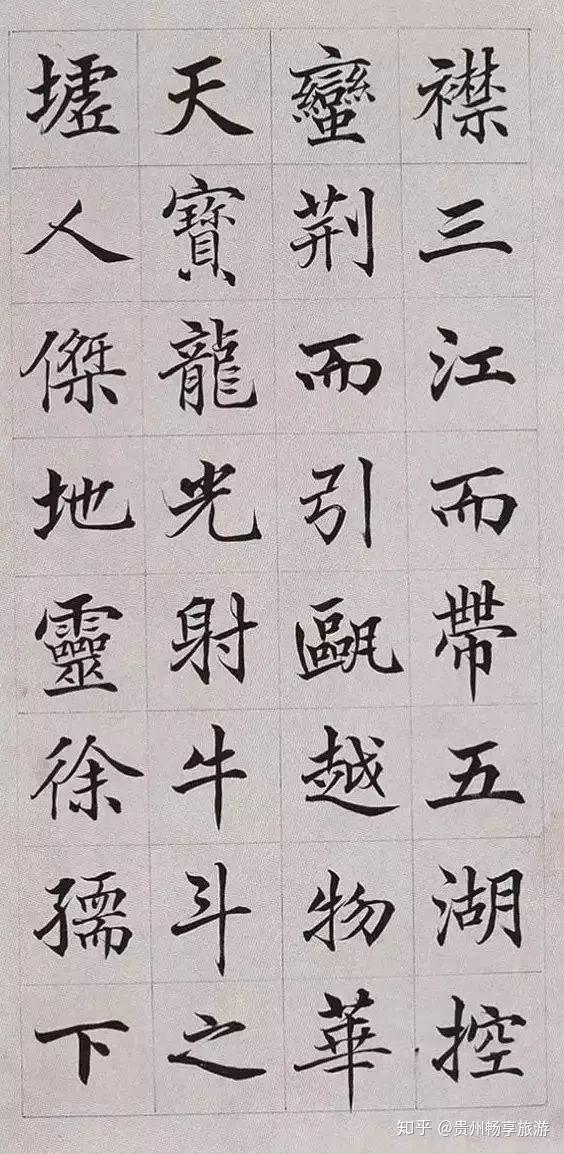 襟三江而帶五湖控
蠻荆而引甌越物華
天寶龍光射牛斗之
墟人傑地靈徐孺下
知乎 @贵州畅享旅游